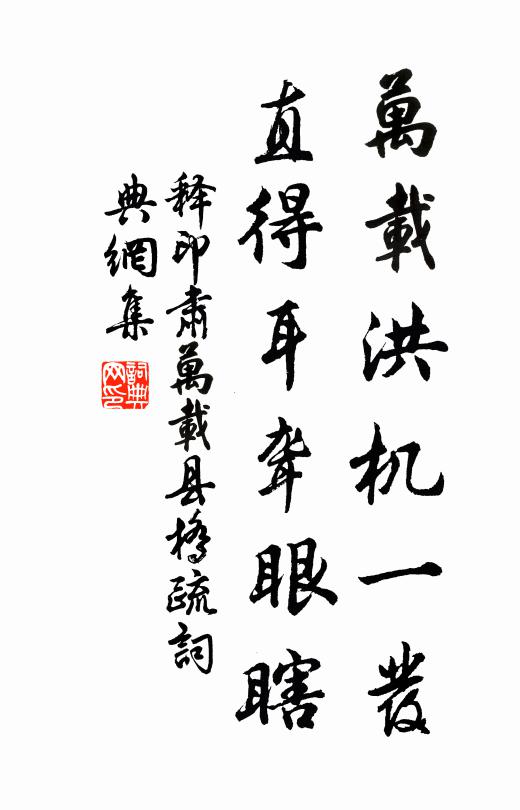 萬載洪机一發
直得耳聾眼瞎
释印肅萬載县橋疏詞
典網集
詞典
网印